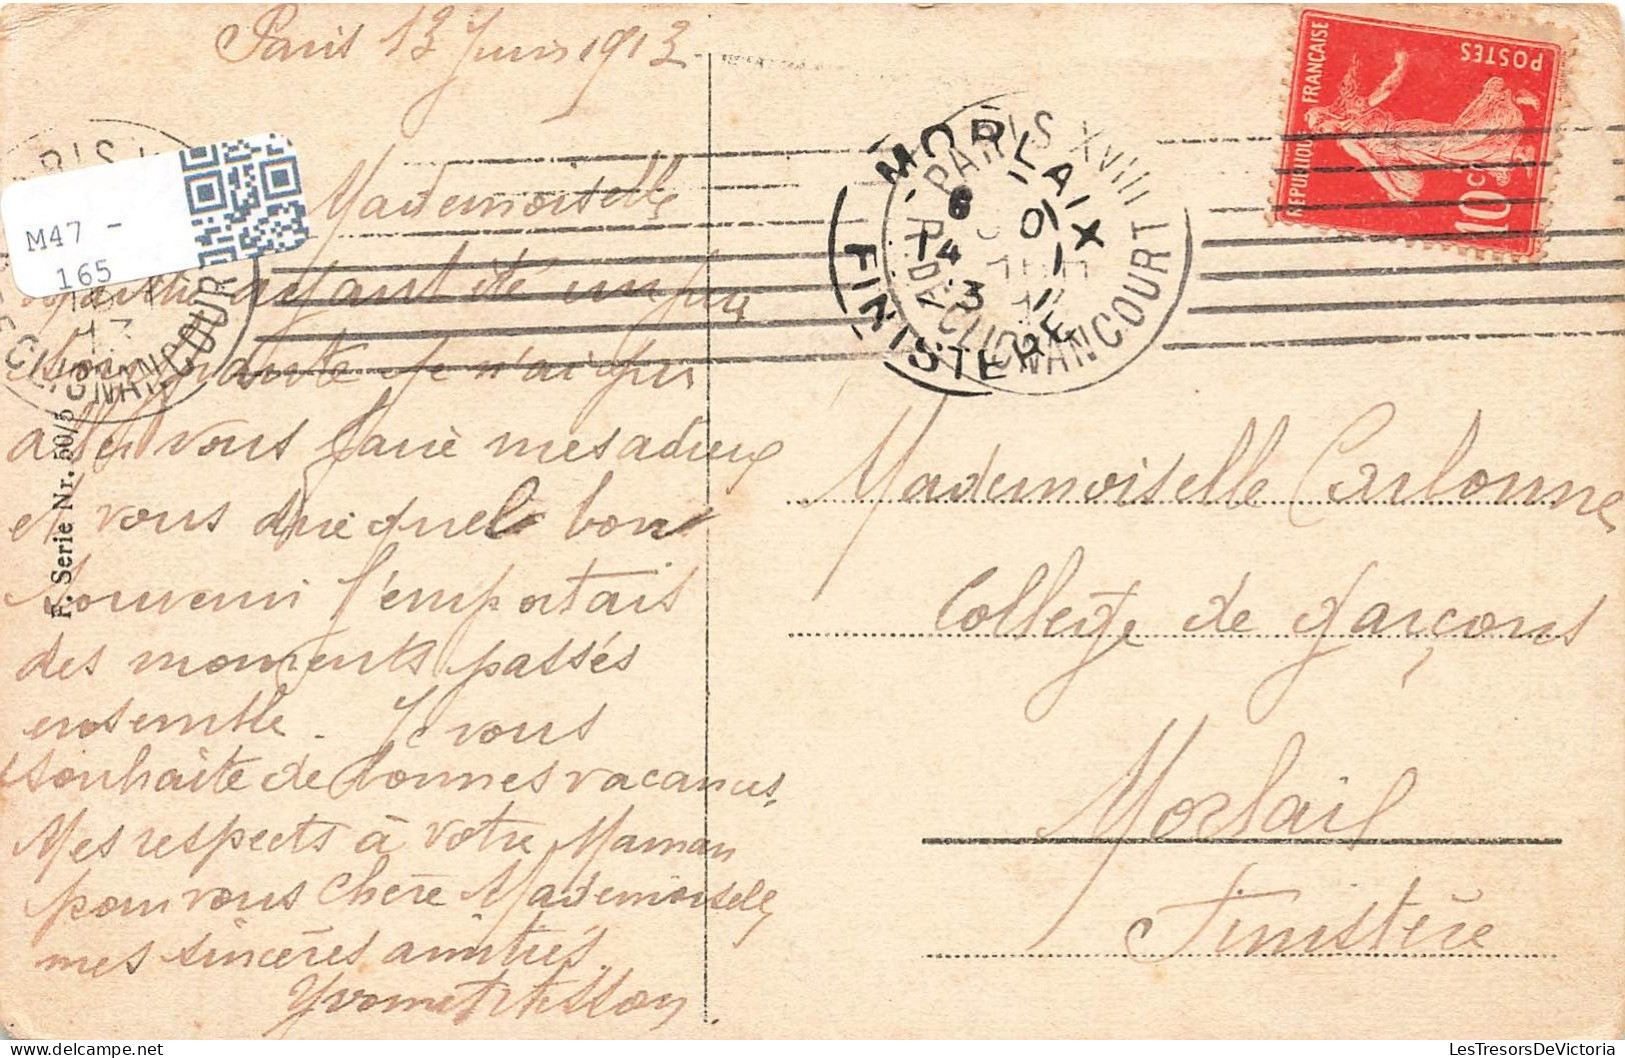 Paris 13 Juin 1913
Mademoiselle
ayant été un peu
je n'ai pu
aller vous faire mes adieux
et vous dire quel bon
souvenir j'emportais
des moments passés
ensemble. Je vous
souhaite de bonnes vacances,
Mes respects à votre Maman
pour vous Chère Mademoiselle
mes sincères amitiés.
Yvonne
F. Serie Nr. 50/5
M47 -
165
PARIS XVIII
R. DE CLIGNANCOURT
MORLAIX
FINISTERE
REPUBLIQUE FRANÇAISE
POSTES
10 C
Mademoiselle Carlonne
Collège de garçons
Morlaix
Finistère
LesTresorsDeVictoria